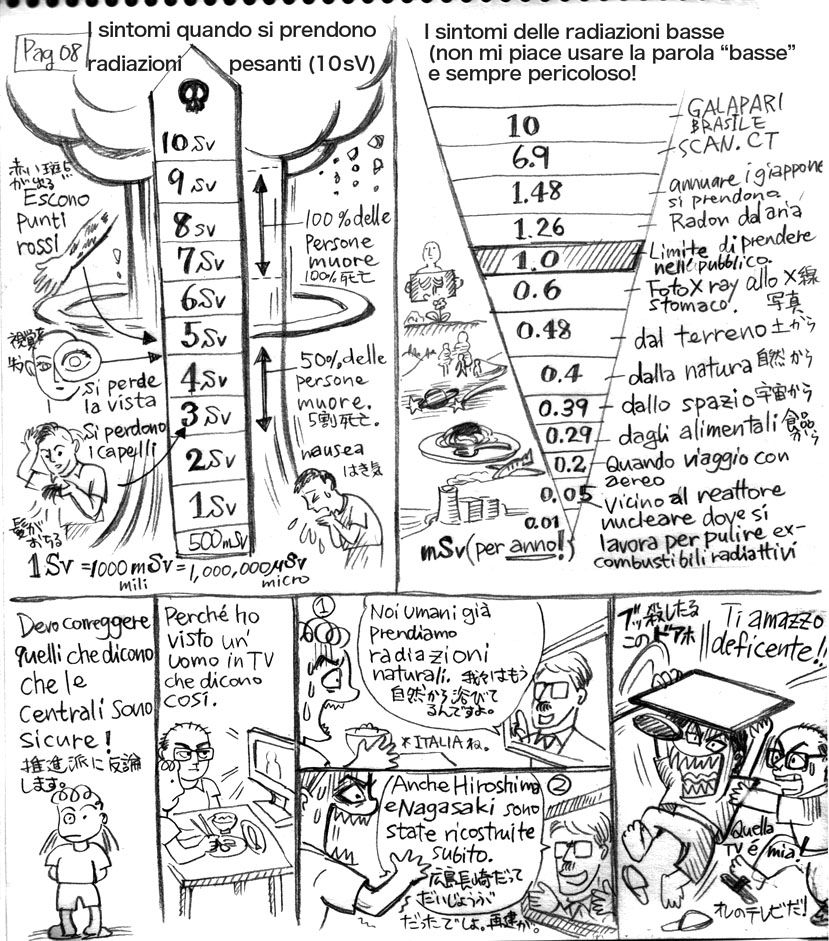 Pag 08
I sintomi quando si prendono
radiazioni pesanti (10sV)
10 Sv
9 Sv
8 Sv
7 Sv
6 Sv
5 Sv
4 Sv
3 Sv
2 Sv
1 Sv
500 mSv
赤い斑点
が出る
Escono
Punti
rossi
100% delle
Persone
muore
100% 死亡
視覚を
失う
Si perde
la vista
Si perdono
i capelli
髪が
おちる
50% delle
persone
muore.
5割死亡.
nausea
はき気
1 Sv = 1000 mSv = 1,000,000 μSv
mili
micro
I sintomi delle radiazioni basse
(non mi piace usare la parola “basse”
e sempre pericoloso!
10
6.9
1.48
1.26
1.0
0.6
0.48
0.4
0.39
0.29
0.2
0.05
0.01
mSv (per anno!)
GALAPARI
BRASILE
SCAN. CT
annuare i giappone
si prendona
Radon dal aria
Limite di prendere
nella pubblico.
Foto X ray allo X線
stomaco. 写真
dal terreno 土から
dalla natura 自然から
dallo spazio 宇宙から
dagli alimentali 食品
から
Quando viaggio con
aereo
Vicino al reattore
nucleare dove si
lavora per pulire ex-
combustibili radiattivi
Devo correggere
quelli che dicono
che le
centrali sono
sicure!
推進派に反論
します。
Perché ho
visto un'
uomo in TV
che dicono
così.
①
Noi umani già
prendiamo
radiazioni
naturali. 我々はもう
自然から浴びて
るんですよ。
* ITALIA ね。
②
Anche Hiroshima
e Nagasaki sono
state ricostruite
subito.
広島長崎だって
だいじょうぶ
だったでしょ。再建が。
ブッ殺したる
このドアホ
Ti amazzo
deficente!!
Quella
TV é mia!
オレのテレビだ!